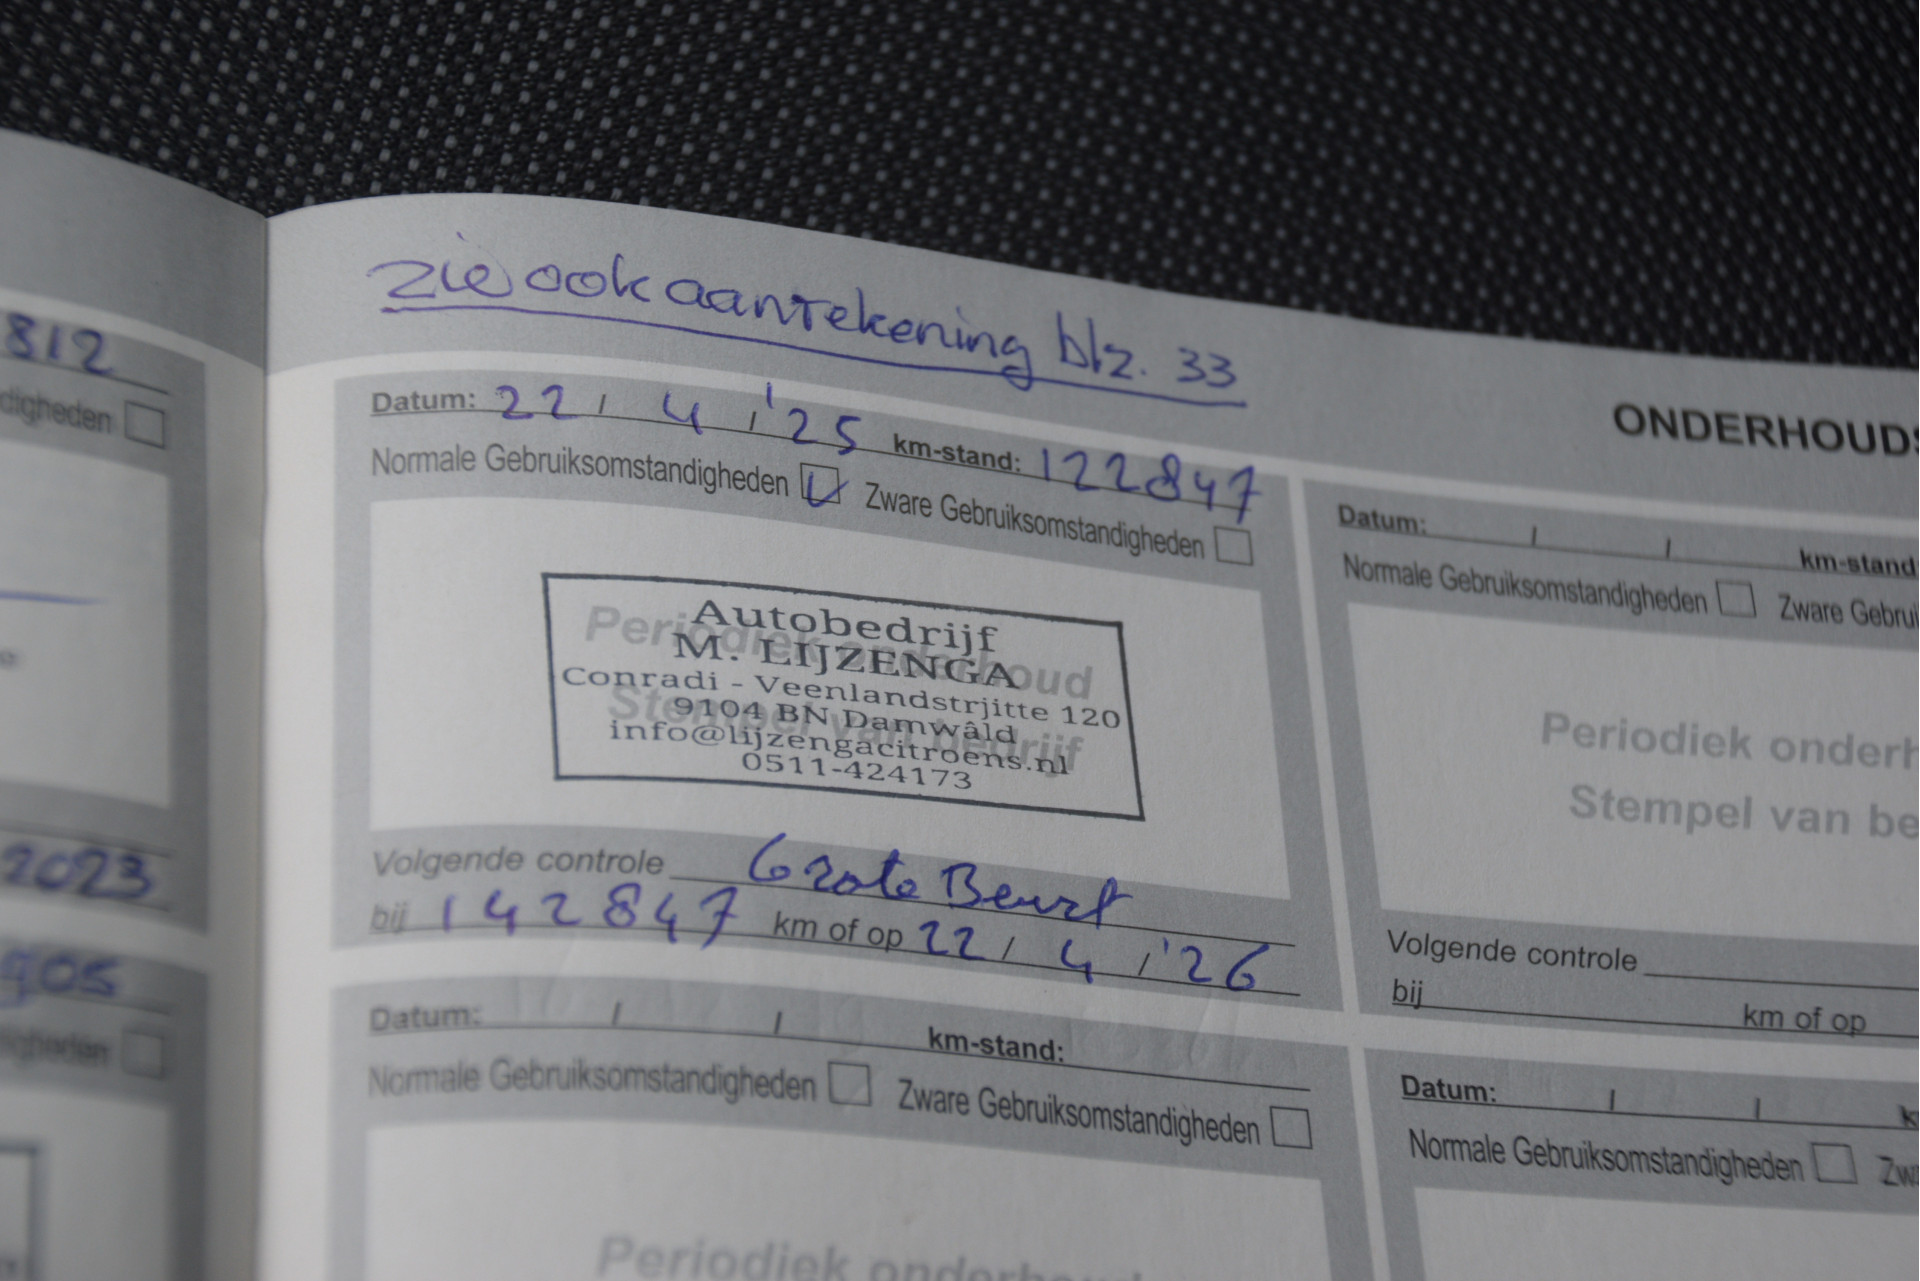 812
digheden
2023
905
gheden
zie ook aantekening blz. 33
ONDERHOUDS
Datum: 22 / 4 / '25 km-stand: 122847
Normale Gebruiksomstandigheden Zware Gebruiksomstandigheden
Periodiek onderhoud
Stempel van bedrijf
Autobedrijf
M. LIJZENGA
Conradi - Veenlandstrjitte 120
9104 BN Damwâld
info@lijzengacitroens.nl
0511-424173
Volgende controle Grote Beurt
bij 142847 km of op 22 / 4 / '26
Datum: / / km-stand
Normale Gebruiksomstandigheden Zware Gebrui
Periodiek onderh
Stempel van be
Volgende controle
bij km of op
Datum: / / km-stand:
Normale Gebruiksomstandigheden Zware Gebruiksomstandigheden
Periodiek onderhoud
Datum: / / k
Normale Gebruiksomstandigheden Zw